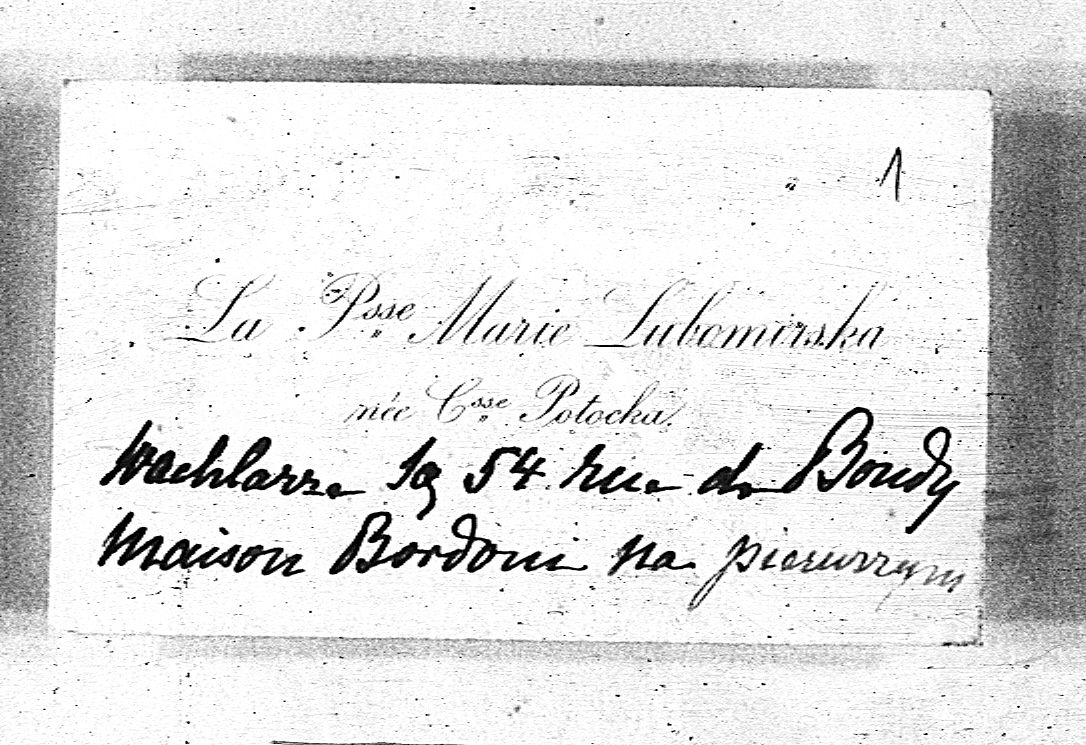 1
La Psse Marie Lubomirska
née Csse Potocka.
Wachlarze są 54 rue de Bondy
Maison Bordoni na pierwszym